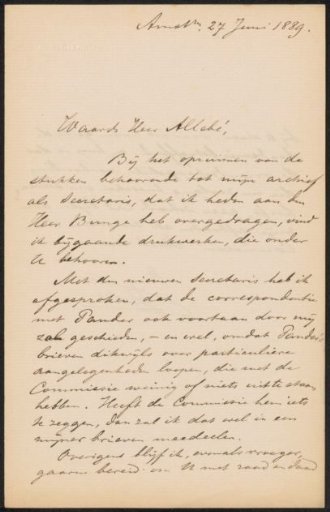 Amst^m. 27 Juni 1889.
Waarde Heer Allebé,
Bij het opruimen van de
stukken behoorende tot mijn archief
als secretaris, dat ik heden aan den
Heer Bunge heb overgedragen, vind
ik bijgaande drukwerken, die onder
U behooren.
Met den nieuwen secretaris heb ik
afgesproken, dat de correspondentie
met Pander ook voortaan door mij
zal geschieden, – en wel, omdat Pander's
brieven dikwijls over particuliere
aangelegenheden loopen, die met de
Commissie weinig of niets uitstaan
hebben. Heeft de Commissie hem iets
te zeggen, dan zal ik dat wel in een
mijner brieven meedeelen.
Overigens blijf ik, evenals vroeger,
gaarne bereid om U met raad en daad